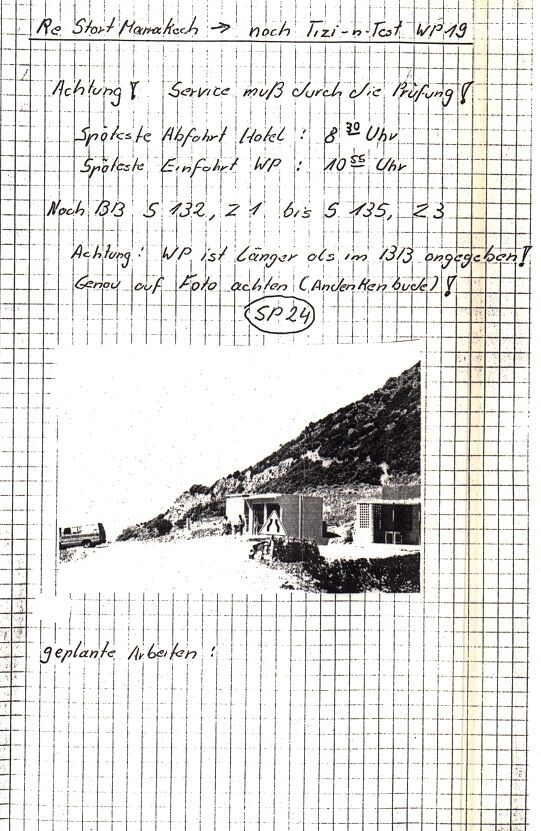 Re Start Marrakech → nach Tizi-n-Test WP 19
Achtung! Service muß durch die Prüfung!
Späteste Abfahrt Hotel : 8 30 Uhr
Späteste Einfahrt WP : 10 55 Uhr
Nach BB S 132, Z 1 bis S 135, Z 3
Achtung: WP ist länger als im BB angegeben!
Genau auf Foto achten (Andenkenbude)!
SP 24
geplante Arbeiten :